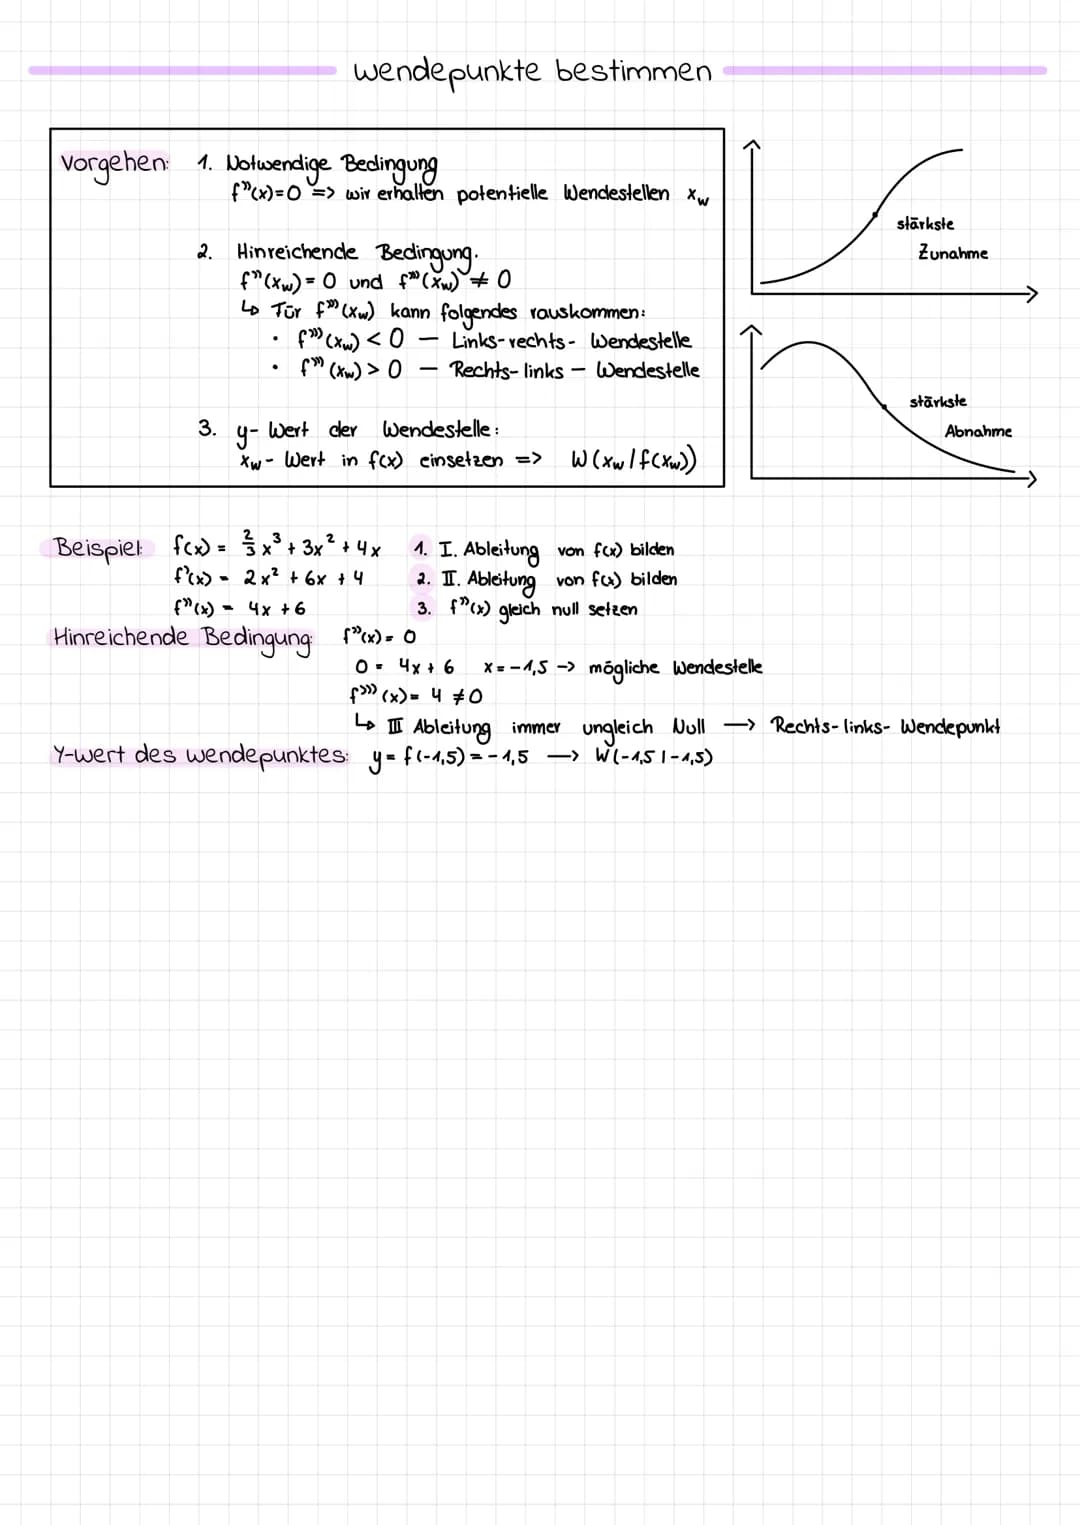 wendepunkte bestimmen
Vorgehen: 1. Notwendige Bedingung
f''(x)=0 => wir erhalten potentielle Wendestellen x_w
2. Hinreichende Bedingung.
f''(x_w) = 0 und f'''(x_w) ≠ 0
↳ Für f'''(x_w) kann folgendes rauskommen:
• f'''(x_w) < 0 – Links-rechts- Wendestelle
• f'''(x_w) > 0 – Rechts-links – Wendestelle
3. y- Wert der Wendestelle:
x_w - Wert in f(x) einsetzen => W(x_w / f(x_w))
stärkste
Zunahme
stärkste
Abnahme
Beispiel: f(x) = 2/3 x³ + 3x² + 4x 1. I. Ableitung von f(x) bilden
f'(x) = 2x² + 6x + 4 2. II. Ableitung von f(x) bilden
f''(x) = 4x + 6 3. f''(x) gleich null setzen
Hinreichende Bedingung: f''(x) = 0
0 = 4x + 6 x = -1,5 -> mögliche Wendestelle
f'''(x) = 4 ≠ 0
↳ III Ableitung immer ungleich Null —> Rechts-links- Wendepunkt
Y-wert des wendepunktes: y = f(-1,5) = -1,5 —> W(-1,5 | -1,5)